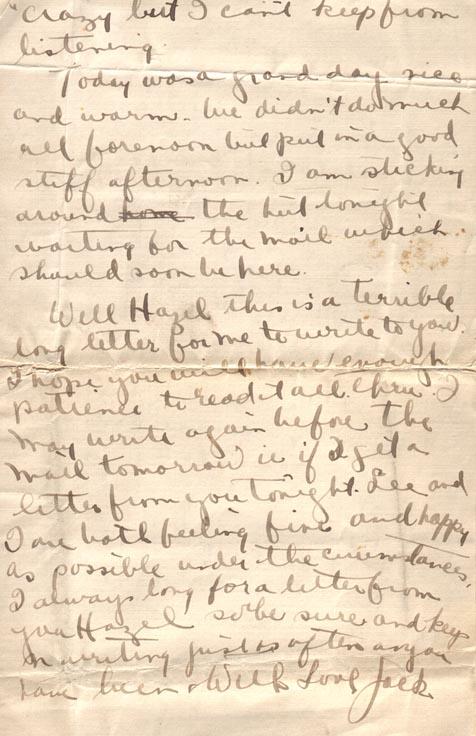 "crazy but I can't keep from
listening.
Today was a grand day nice
and warm. We didn't do much
all forenoon but put in a good
stiff afternoon. I am sticking
around home the hut tonight
waiting for the mail which
should soon be here.
Well Hazel this is a terrible
long letter for me to write to you.
I hope you will have enough
patience to read it all thru. I
may write again before the
mail tomorrow ie if I get a
letter from you tonight. Lee and
I are both feeling fine and happy
as possible under the circumstances.
I always long for a letter from
you Hazel so be sure and keep
on writing just as often as you
have been. With Love Jack